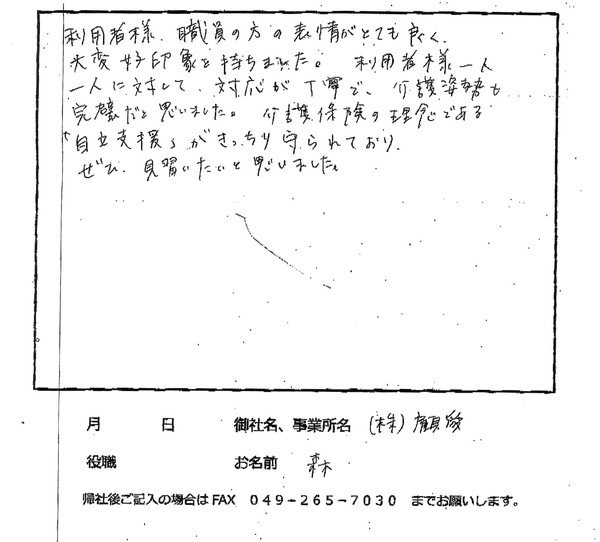 利用者様、職員の方の表情がとても良く、
大変好印象を持ちました。 利用者様一人
一人に対して、対応が丁寧で、介護姿勢も
完璧だと思いました。介護保険の理念である
「自立支援」がきっちり守られており、
ぜひ、見習いたいと思いました。
月 日 御社名、事業所名 (株)顧愛
役職 お名前 森
帰社後ご記入の場合はFAX 049-265-7030 までお願いします。